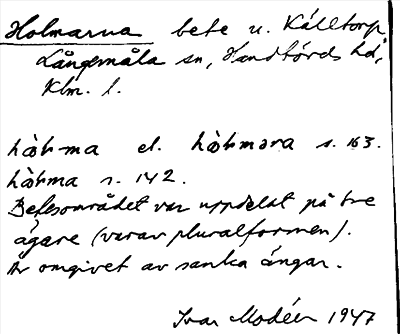 Holmarna bete u. Källtorp,
Långemåla sn, Handbörds hd,
Klm. l.
hòḷma el. hòḷmąra s. 163.
hòḷma s. 142.
Betesområdet var uppdelat på tre
ägare (varav pluralformen).
Är omgivet av sanka ängar.
Ivar Modéer 1947